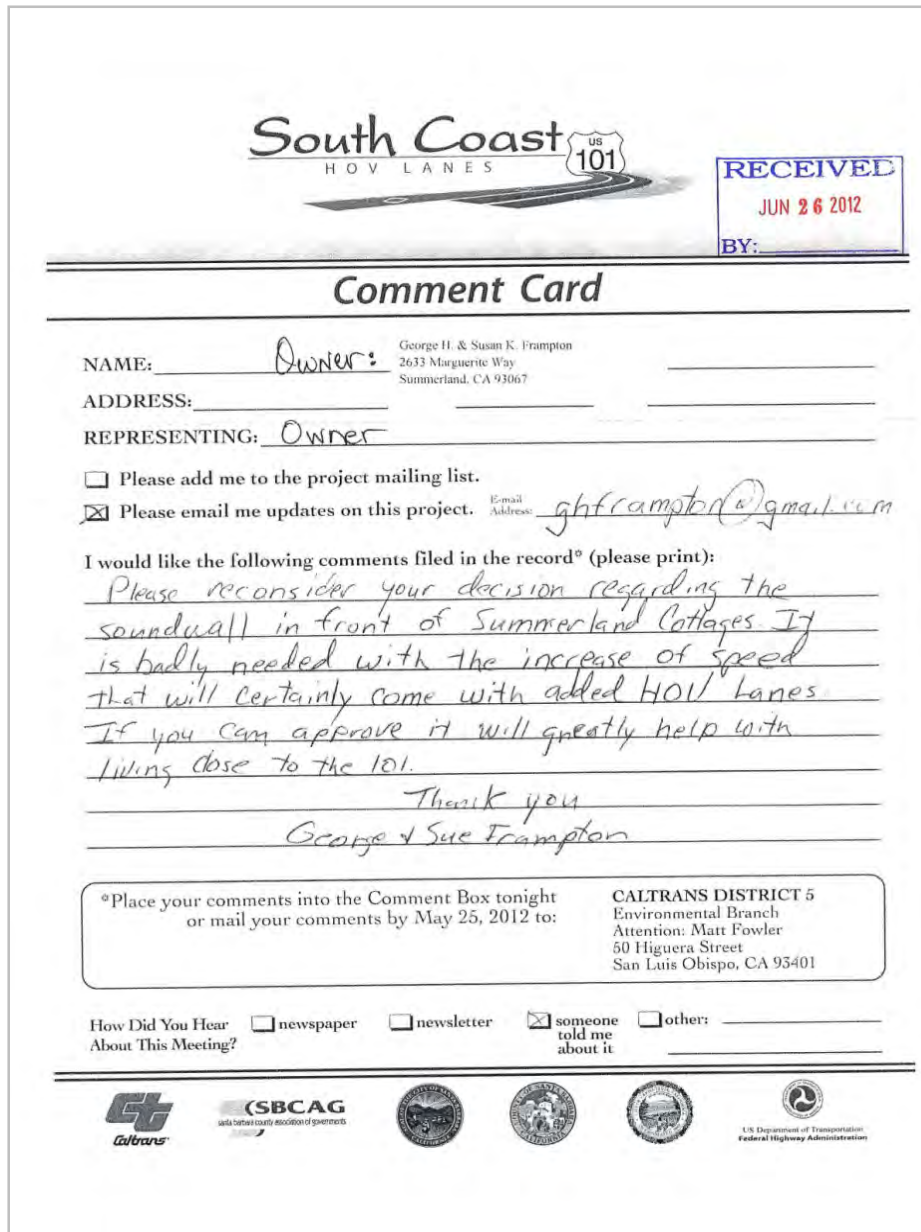 South Coast
HOV LANES
US
101
RECEIVED
JUN 26 2012
BY:
Comment Card
NAME: Owner:
George H. & Susan K. Frampton
2633 Marguerite Way
Summerland, CA 93067
ADDRESS:
REPRESENTING: Owner
Please add me to the project mailing list.
Please email me updates on this project. E-mail Address: ghframpton@gmail.com
I would like the following comments filed in the record* (please print):
Please reconsider your decision regarding the
soundwall in front of Summerland Cottages. It
is badly needed with the increase of speed
that will certainly come with added HOV Lanes
If you can approve it will greatly help with
living close to the 101.
Thank you
George & Sue Frampton
*Place your comments into the Comment Box tonight
or mail your comments by May 25, 2012 to:
CALTRANS DISTRICT 5
Environmental Branch
Attention: Matt Fowler
50 Higuera Street
San Luis Obispo, CA 93401
How Did You Hear
About This Meeting?
newspaper
newsletter
someone
told me
about it
other:
Caltrans
SBCAG
santa barbara county association of governments
US Department of Transportation
Federal Highway Administration